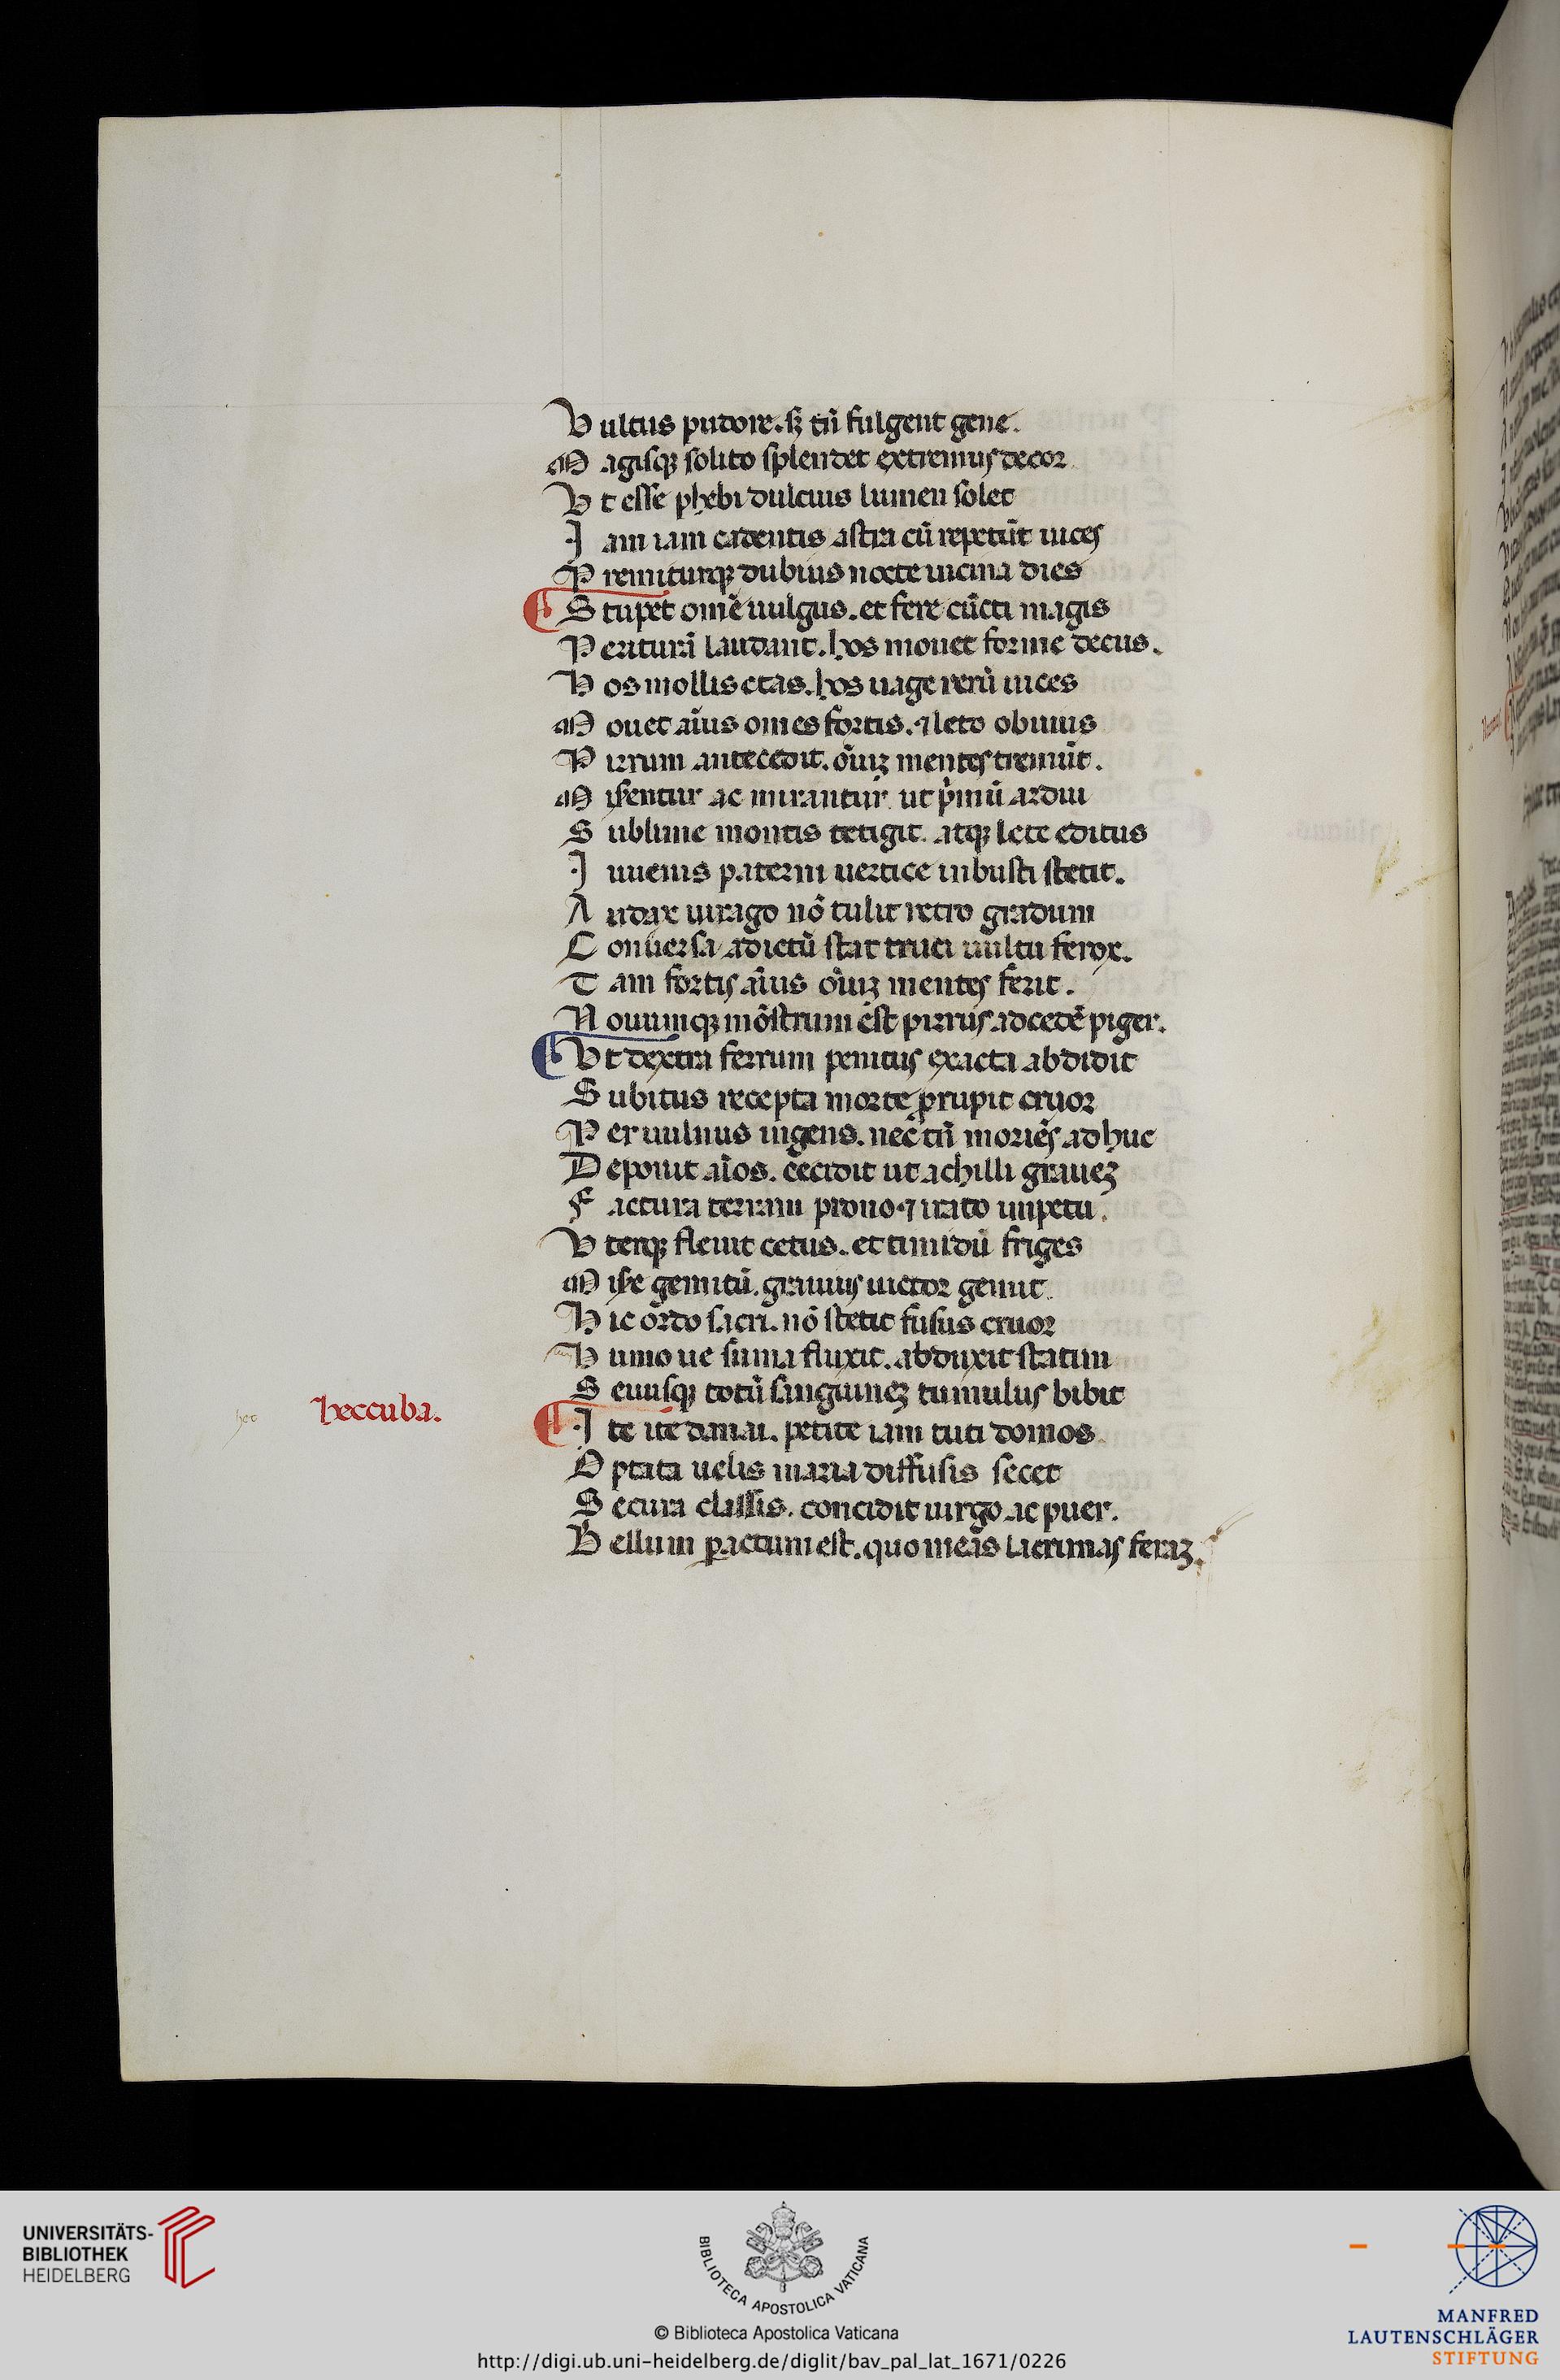 Vultus pudore. sꝫ tn̄ fulgent gene.
Magisqꝫ solito splendet extremus decor
Vt esse phebi dulcius lumen solet
Iam iam cadentis astra cū repetūt uices
Premiturqꝫ dubius nocte uicina dies
Stupet om̄e uulgus. et fere cūcti magis
Peritura laudant. hos mouet forme decus.
Hos mollis etas. hos uage rerū uices
Mouet aīus om̄es fortis. ⁊ leto obuius
Pirrum antecedit. oīuꝫ mentes tremūt.
Miserentur ac mirantur ut pͥmū ardui
Sublime montis tetigit. atqꝫ lete editus
Iuuenis paterni uertice in busti stetit.
Audax uirago nō tulit retro gradum
Conuersa ad ictū stat truci uultu ferox.
Tam fortis aīus oīuꝫ mentes ferit.
Nouumqꝫ mōstrum est pirrus ad cedē piger.
Vt dextra ferrum penitus exacta abdidit
Subitus recepta morte ꝓrupit cruor
Per uulnus ingens. nec tn̄ moriēs adhuc
Deponit aīos. cecidit ut achilli grauēꝫ
Factura terram prono ⁊ irato impetu.
Vterqꝫ fleuit cetus. et timidū friges
Misere gemitū. grauius uictor gemit.
Hic ordo sacri. nō stetit fusus cruor
Humo ue suma fluxit. abduxit statim
Seuusqꝫ totū sanguineꝫ tumulus bibit
heccuba.
Ite ite danai. petite iam tuti domos
Optata uelis maria diffusis secet
Secura classis. concidit uirgo ac puer.
Bellum ꝑactum est. quo meas lacrimas feraꝫ.
UNIVERSITÄTS-
BIBLIOTHEK
HEIDELBERG
BIBLIOTECA APOSTOLICA VATICANA
© Biblioteca Apostolica Vaticana
http://digi.ub.uni-heidelberg.de/diglit/bav_pal_lat_1671/0226
MANFRED
LAUTENSCHLÄGER
STIFTUNG